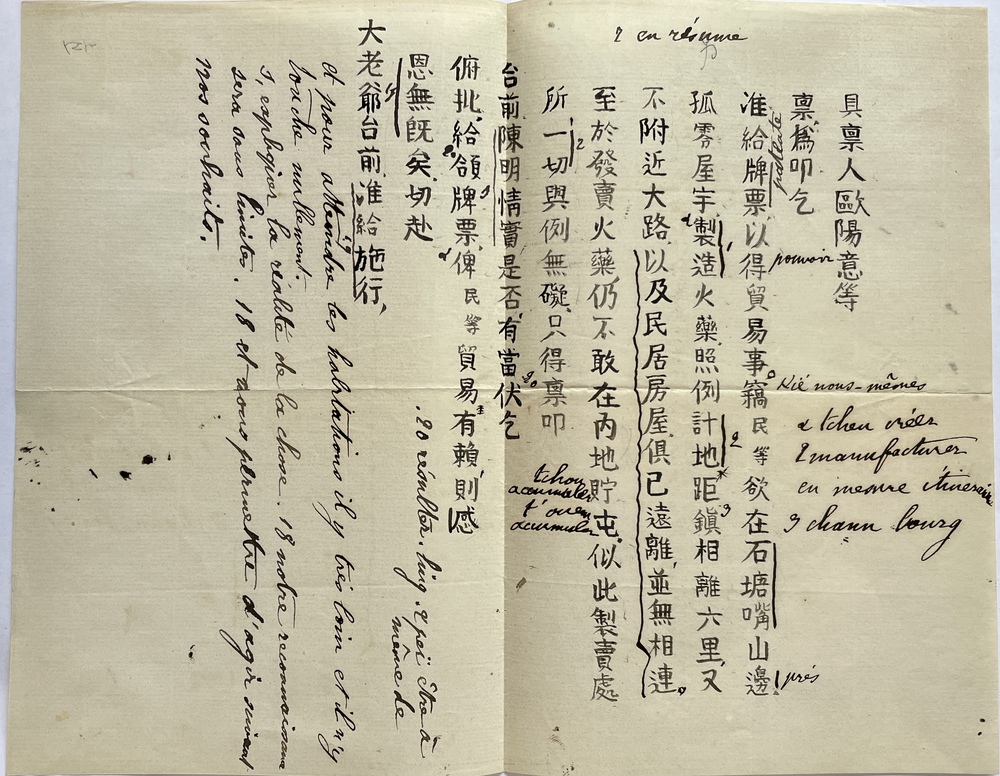 具禀人歐陽意等
禀為叩乞
准給牌票以得貿易事竊民等欲在石塘嘴山邊
孤零屋宇製造火藥照例計地距鎮相離六里又
不附近大路以及民居房屋俱已遠離並無相連
至於發賣火藥仍不敢在內地貯屯似此製賣處
所一切與例無礙只得禀叩
台前陳明情實是否有當伏乞
俯批給領牌票俾民等貿易有賴則感
恩無既矣切赴
大老爺台前准給施行
? en résume
pouvoir
près
Nié nous-mêmes
tcheu créer
2 manufacturer
en mesure itinéraire
3 chann bourg
tchou
accumuler
t'ouen
accumuler
20 résulter. hing. 2 pei être à
même de
et pour atteindre les habitations il y très loin et il n'y
touche nullement.
s, expliquer la réalité de la chose. 18 notre reconnaissance
sera sans limites. 18 et nous permettre d'agir suivant
nos souhaits.